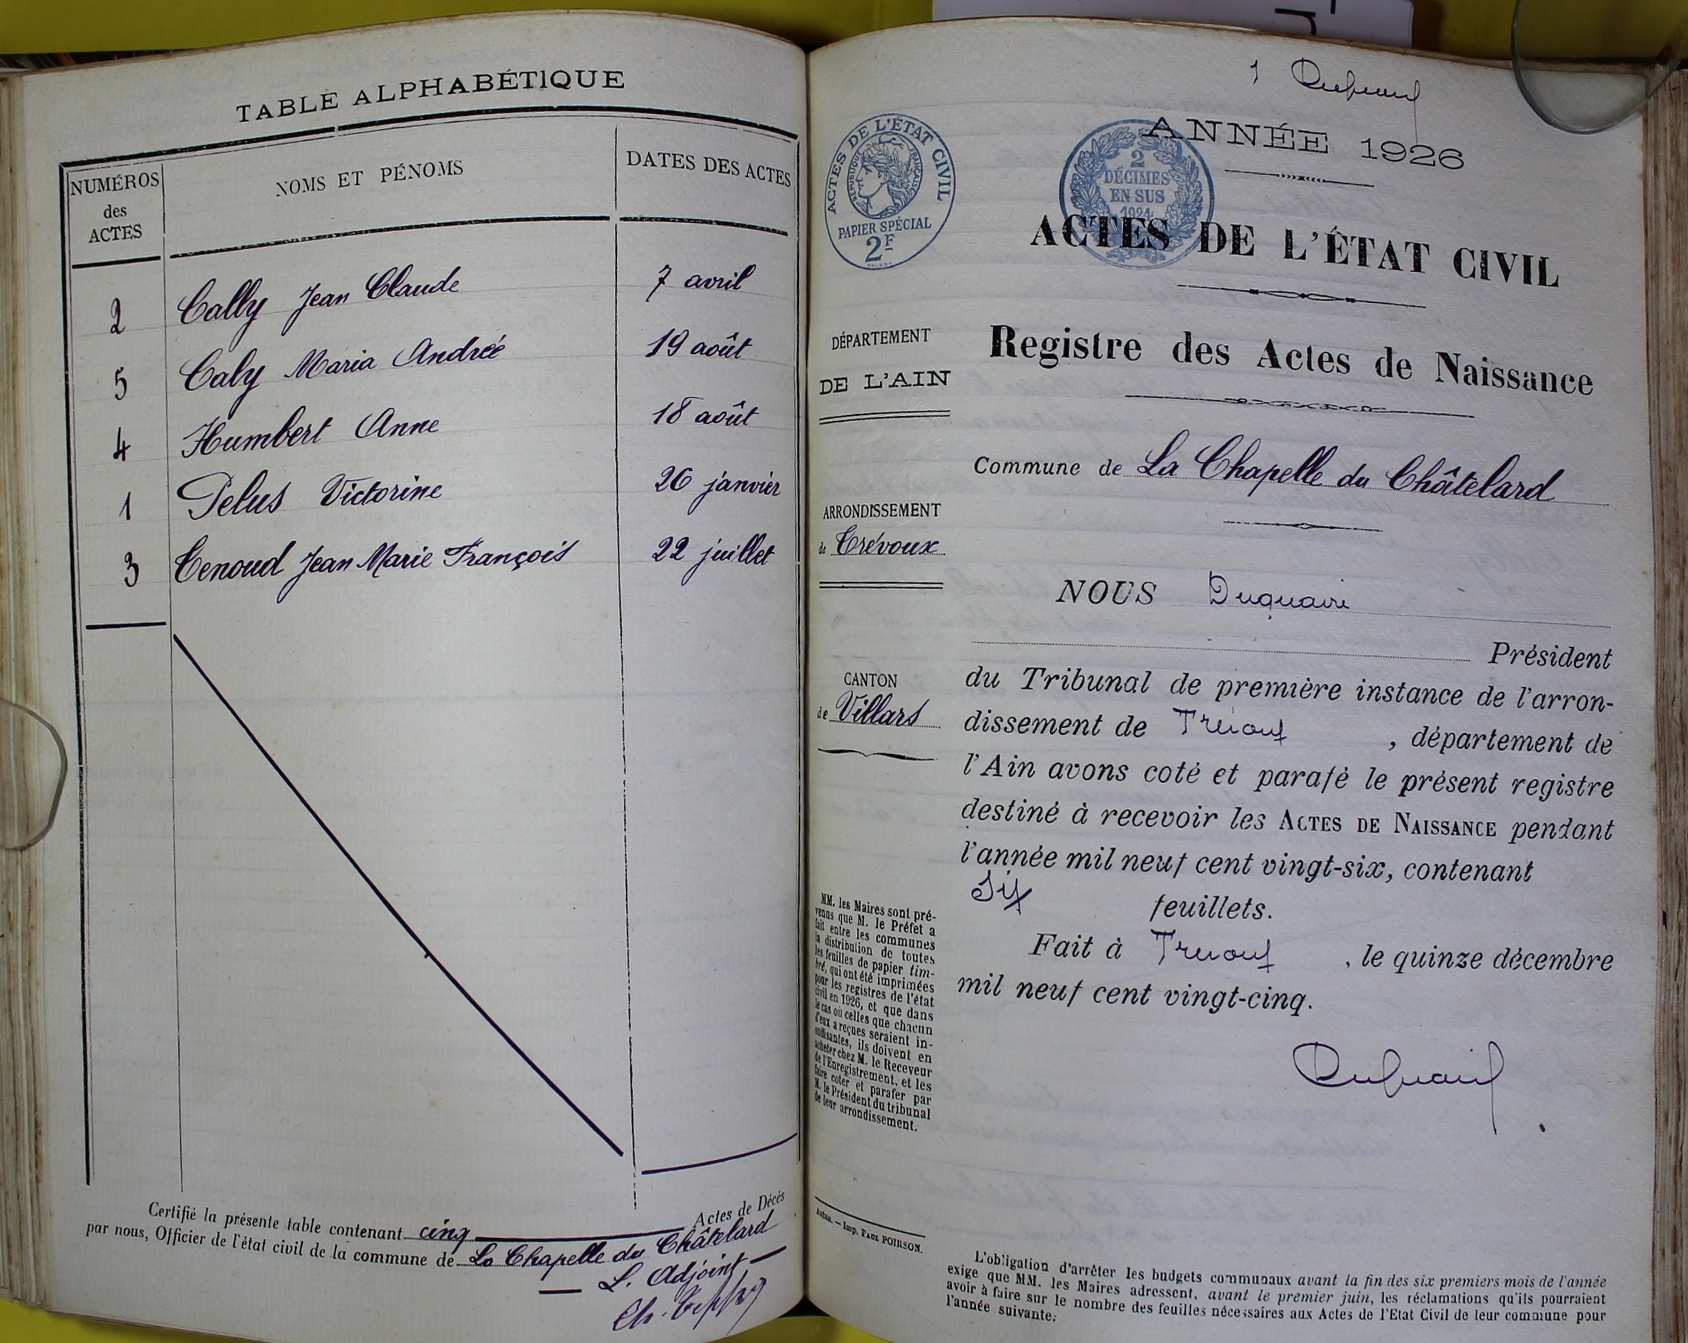 TABLE ALPHABÉTIQUE
NUMÉROS des ACTES
NOMS ET PÉNOMS
DATES DES ACTES
2 Cally Jean Claude 7 avril
5 Caly Maria Andreé 19 août
4 Humbert Anne 18 août
1 Pelus Victorine 26 janvier
3 Tenoud Jean Marie François 22 juillet
Certifié la présente table contenant cinq Actes de Décés
par nous, Officier de l'état civil de la commune de La Chapelle du Châtelard
L. Adjoint
1
ANNÉE 1926
ACTES DE L'ÉTAT CIVIL
RÉPUBLIQUE FRANÇAISE
PAPIER SPÉCIAL
2F
2
DÉCIMES
EN SUS
1924
ACTES DE L'ÉTAT CIVIL
Registre des Actes de Naissance
DÉPARTEMENT
DE L'AIN
Commune de La Chapelle du Châtelard
ARRONDISSEMENT
de Trévoux
CANTON
de Villars
NOUS Duquaire
Président
du Tribunal de première instance de l'arron-
dissement de Trévoux, département de
l'Ain avons coté et parafé le présent registre
destiné à recevoir les ACTES DE NAISSANCE pendant
l'année mil neuf cent vingt-six, contenant
Six feuillets.
Fait à Trévoux, le quinze décembre
mil neuf cent vingt-cinq.
MM. les Maires sont pré-
venus que M. le Préfet a
fait entre les communes
la distribution de toutes
les feuilles de papier tim-
bré, qui ont été imprimées
pour les registres de l'état
civil en 1926, et que dans
le cas où celles que chacun
d'eux a reçues seraient in-
suffisantes, ils doivent en
acheter chez M. le Receveur
de l'Enregistrement, et les
faire coter et parafer par
M. le Président du tribunal
de leur arrondissement.
Imp. PAUL POIRSON.
L'obligation d'arrêter les budgets communaux avant la fin des six premiers mois de l'année
exige que MM. les Maires adressent, avant le premier juin, les réclamations qu'ils pourraient
avoir à faire sur le nombre des feuilles nécessaires aux Actes de l'Etat Civil de leur commune pour
l'année suivante.